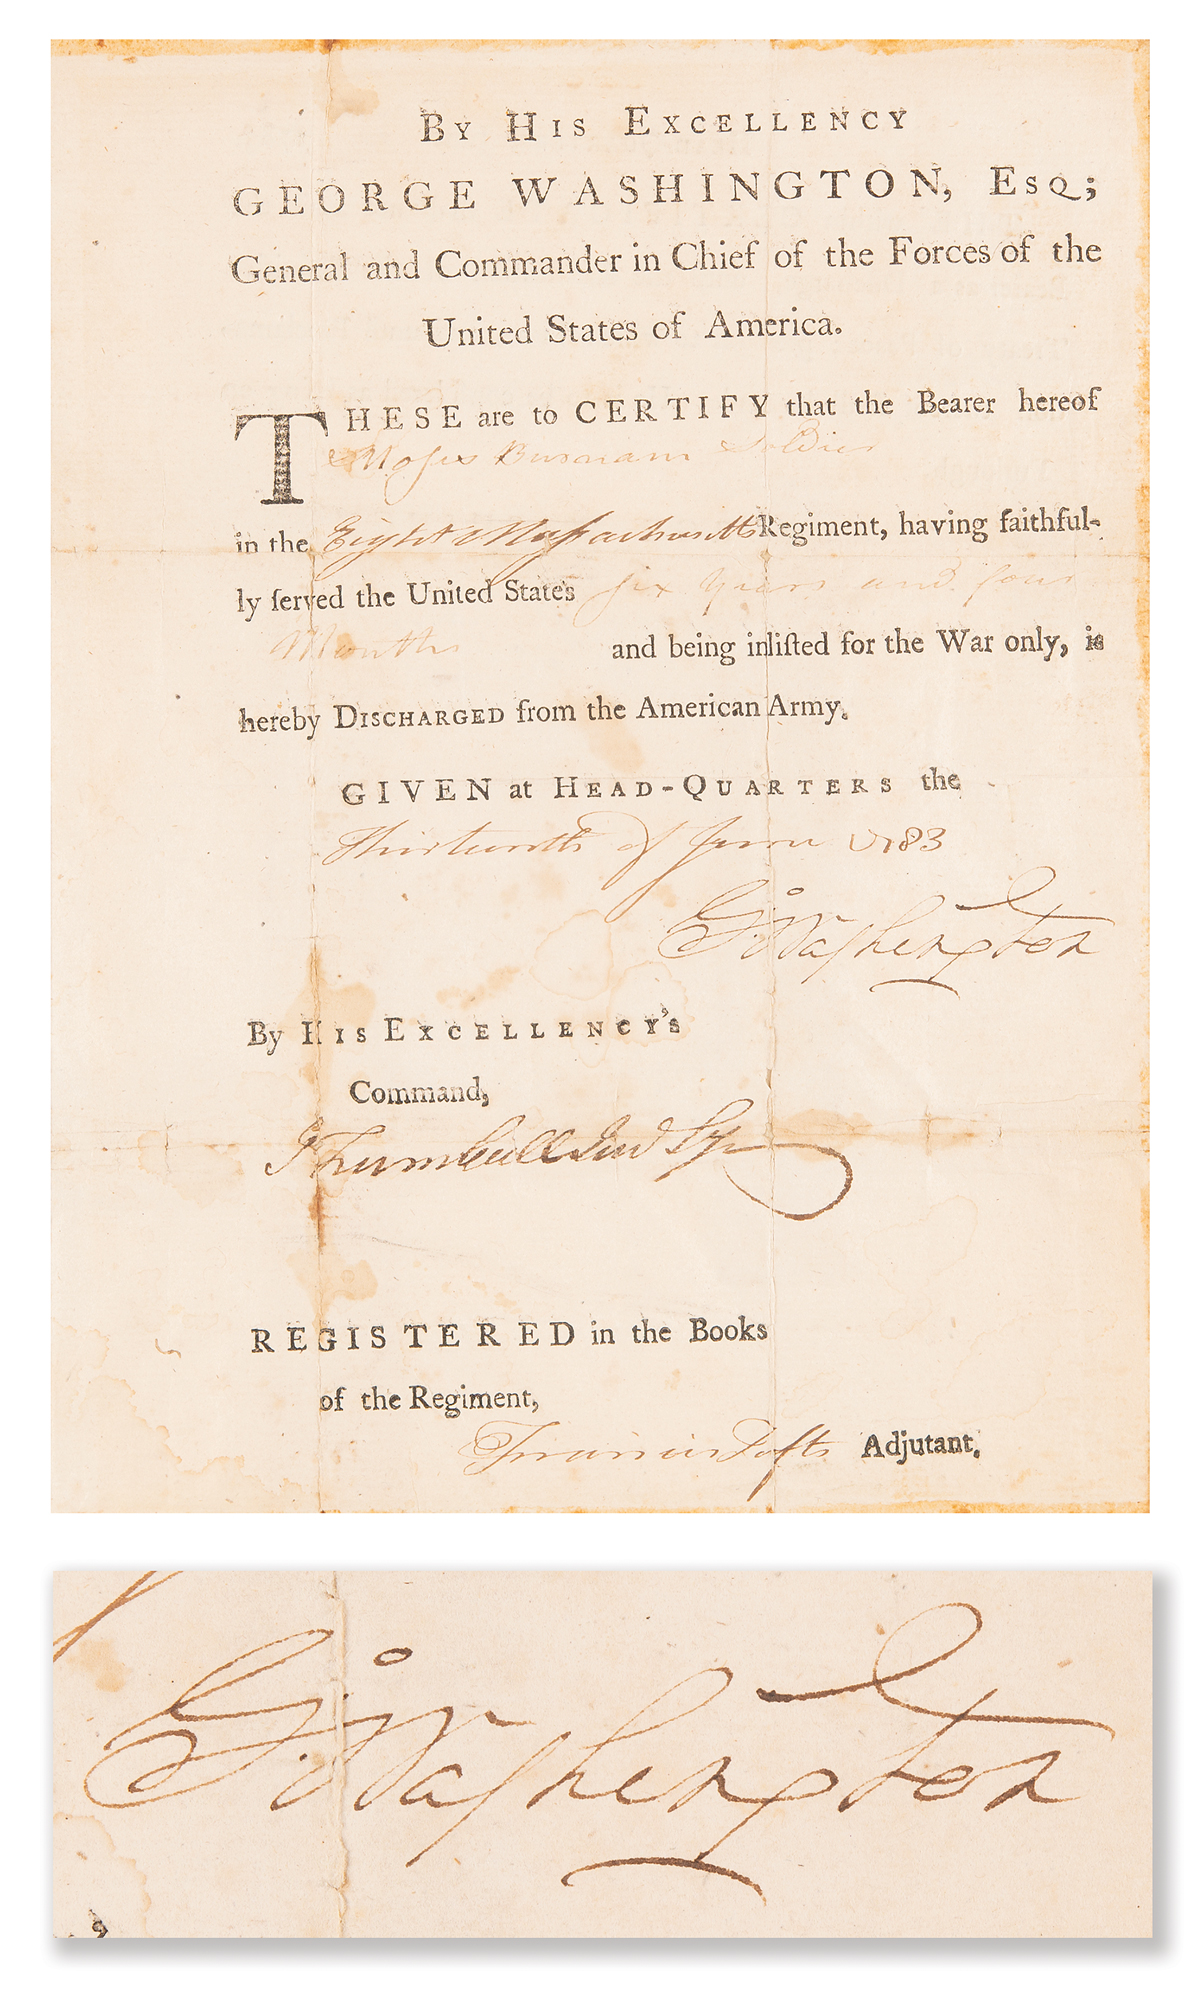 By His Excellency
GEORGE WASHINGTON, Esq;
General and Commander in Chief of the Forces of the
United States of America.
THESE are to CERTIFY that the Bearer hereof
Moses Burnam Soldier
in the Eight Massachusetts Regiment, having faithful-
ly ſerved the United States six years and four
Months and being inliſted for the War only, is
hereby Discharged from the American Army.
GIVEN at Head-Quarters the
Thirteenth of June 1783
G:Washington
By His Excellency's
Command,
J Trumbull Jun Sy
REGISTERED in the Books
of the Regiment,
Francis Tofts Adjutant.
G:Washington